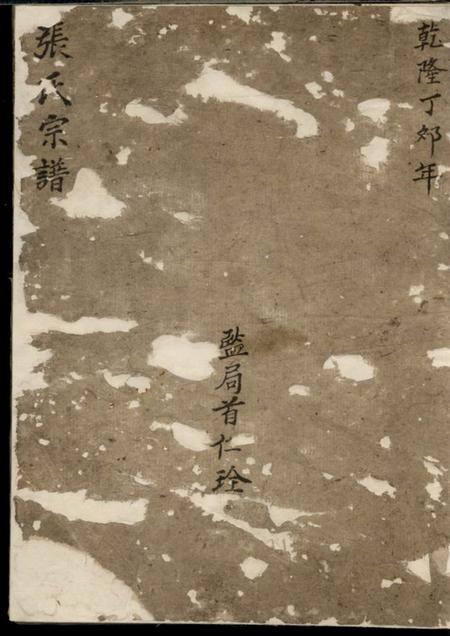 乾隆丁卯年
監局首仁
張氏宗譜